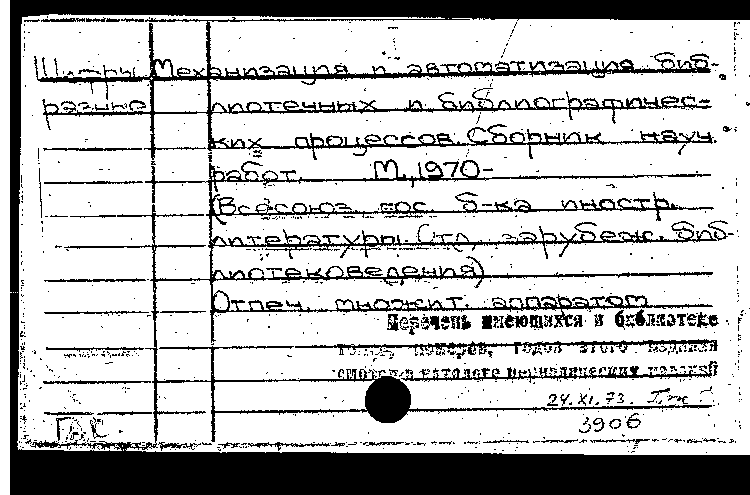 Шифры Механизация и автоматизация биб-
разные лиотечных и библиографичес-
ких процессов. Сборник науч.
работ. М., 1970-
(Всесоюз. гос. б-ка иностр.
литературы. Отд. зарубеж. биб-
лиотековедения)
Отпеч. множит. аппаратом
Перечень имеющихся в библиотеке
томов, номеров, годов этого издания
смотри в каталоге периодических изданий
24.XI.73.
3906